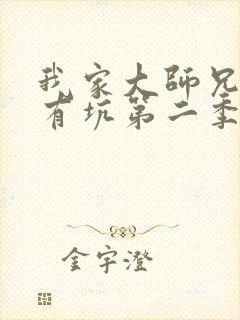 我家大師兄
有坑第二季
金宇澄